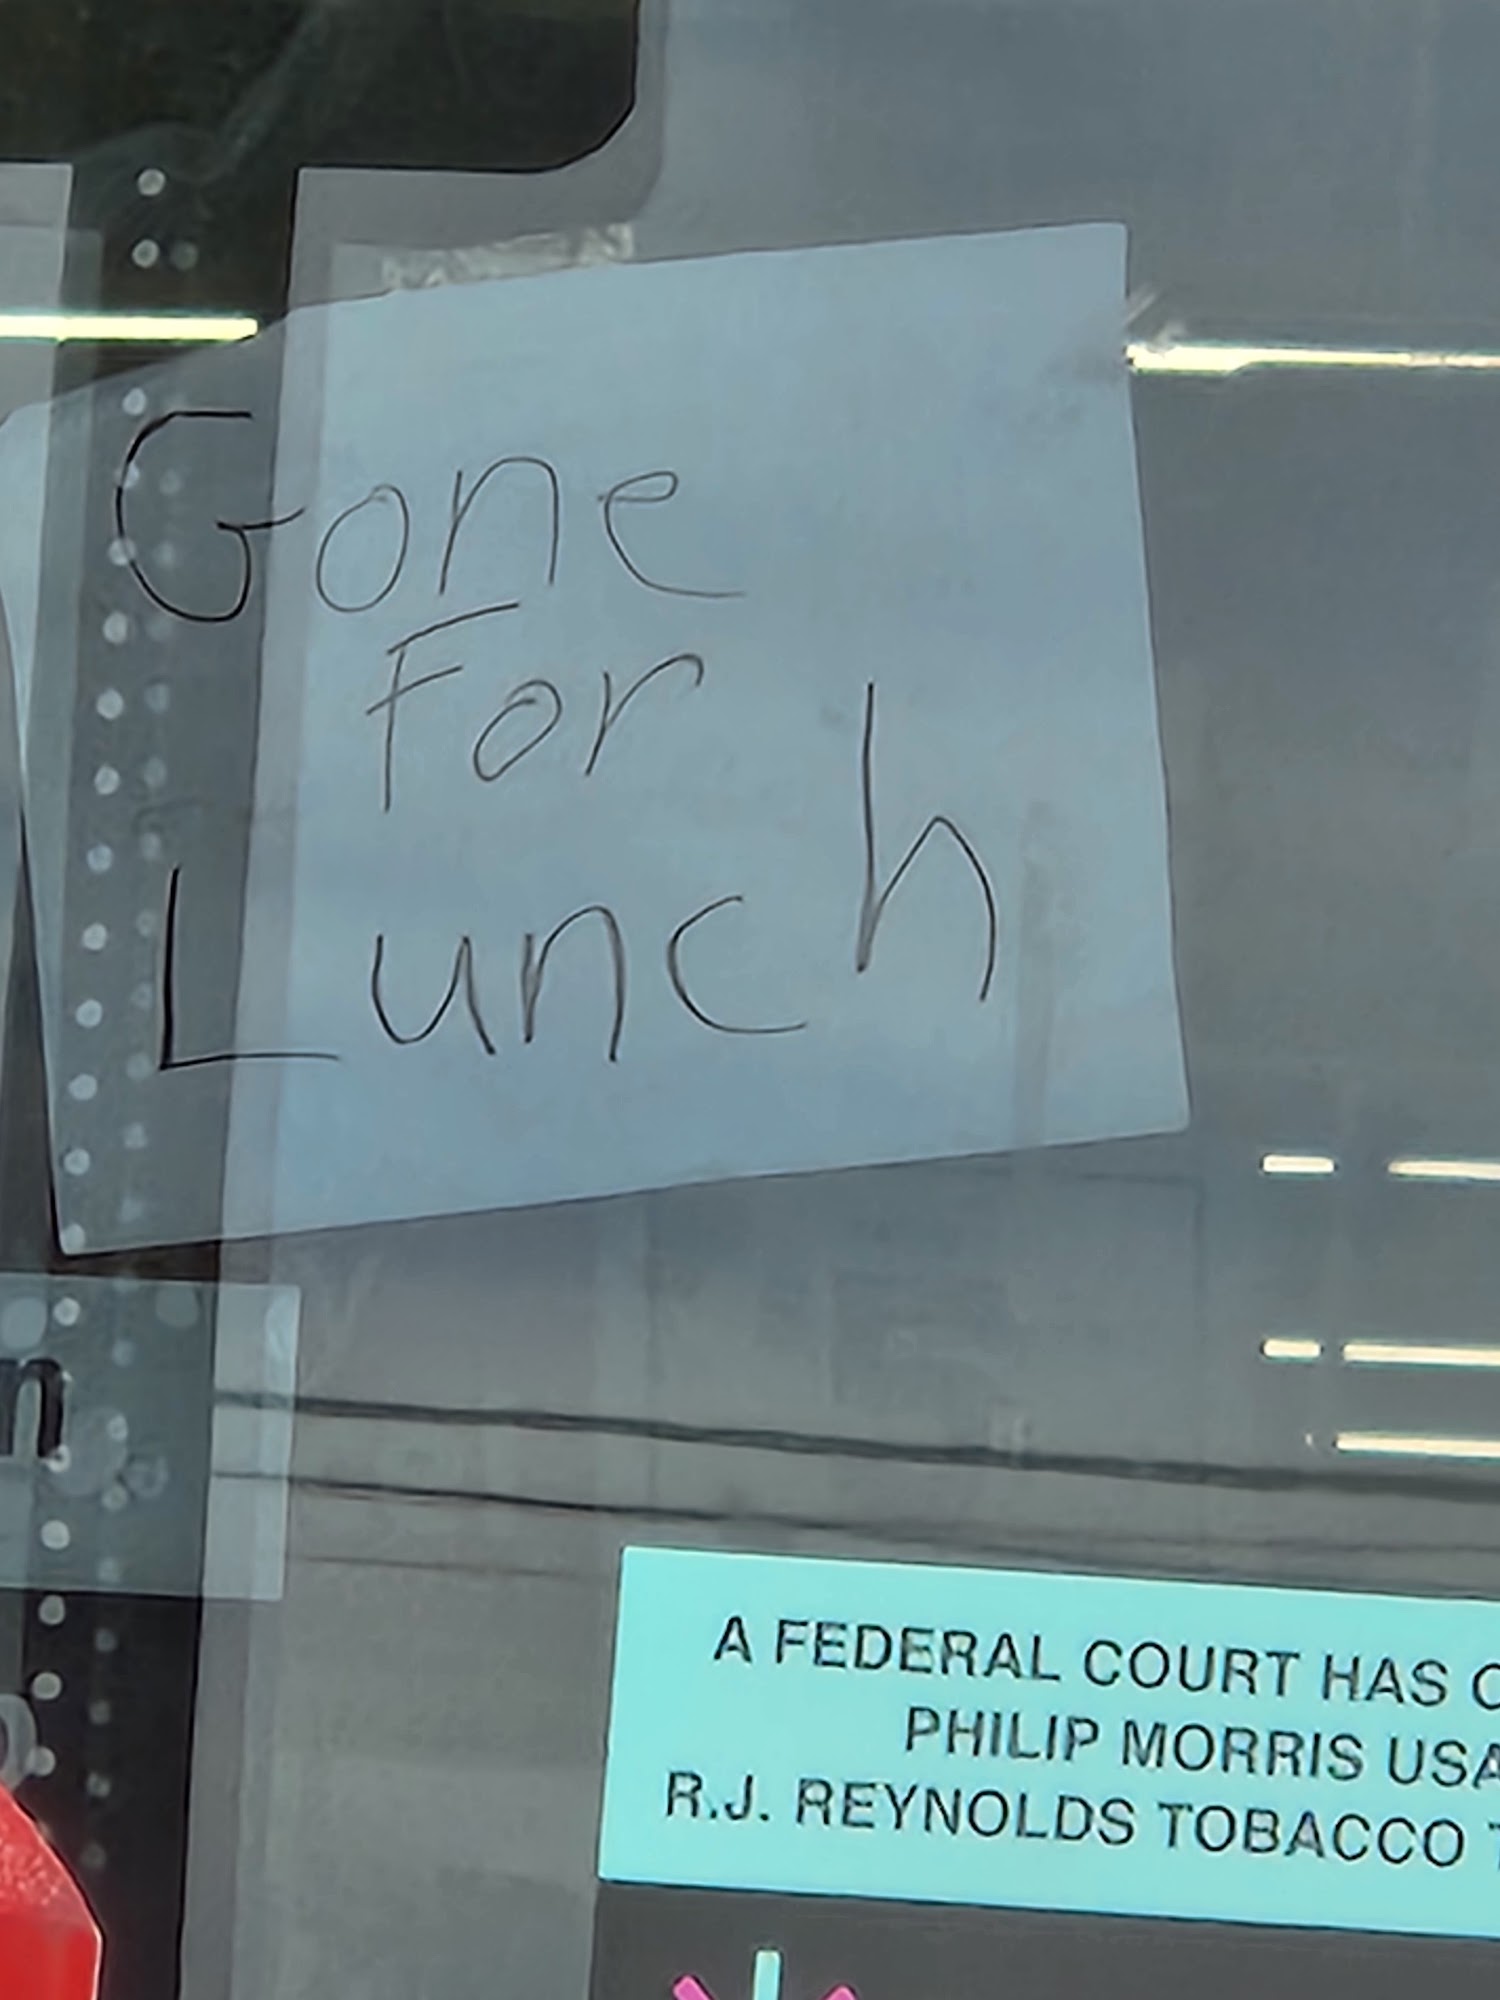 Gone
For
Lunch
n
A FEDERAL COURT HAS
PHILIP MORRIS USA
R.J. REYNOLDS TOBACCO